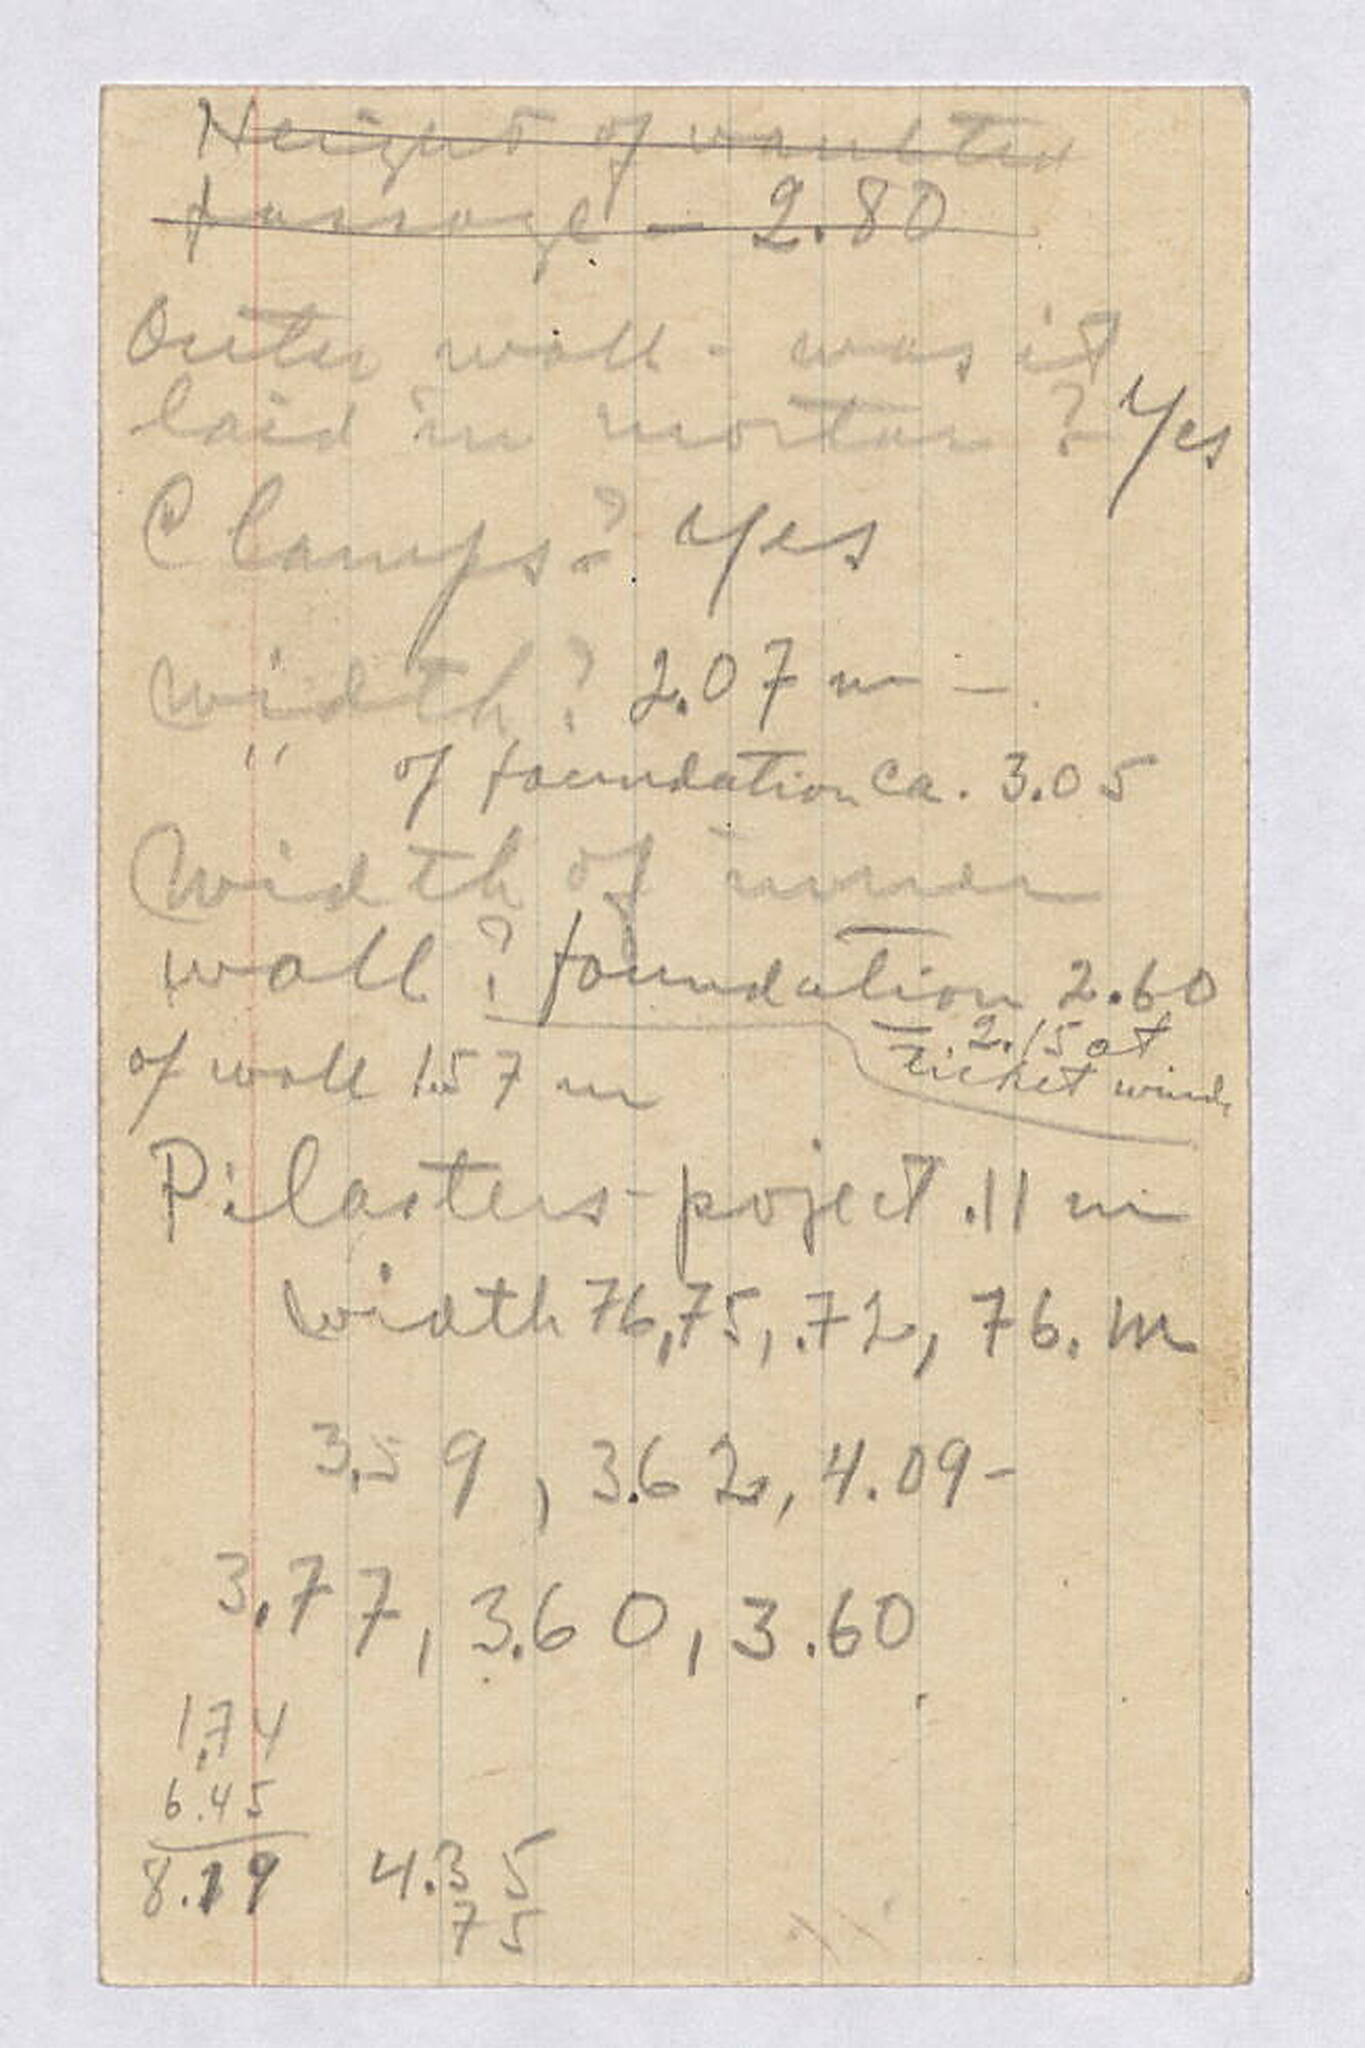 Height of vaulted
passage - 2.80
Outer wall - was it
laid in mortar? Yes
Clamps? Yes
Width? 2.07 m -
" of foundation ca. 3.05
Width of inner
wall? foundation 2.60
- 2.15 at
ticket wind.
of wall 1.57 m
Pilasters - poject .11 m
width 76, 75, .72, 76. m
3.59, 3.62, 4.09 -
3.77, 3.60, 3.60
1.74
6.45
8.19
4.35
75